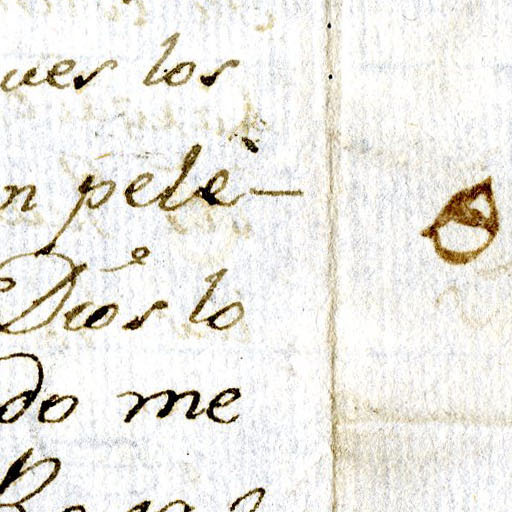 ues los
n pele-
Dios lo
do me